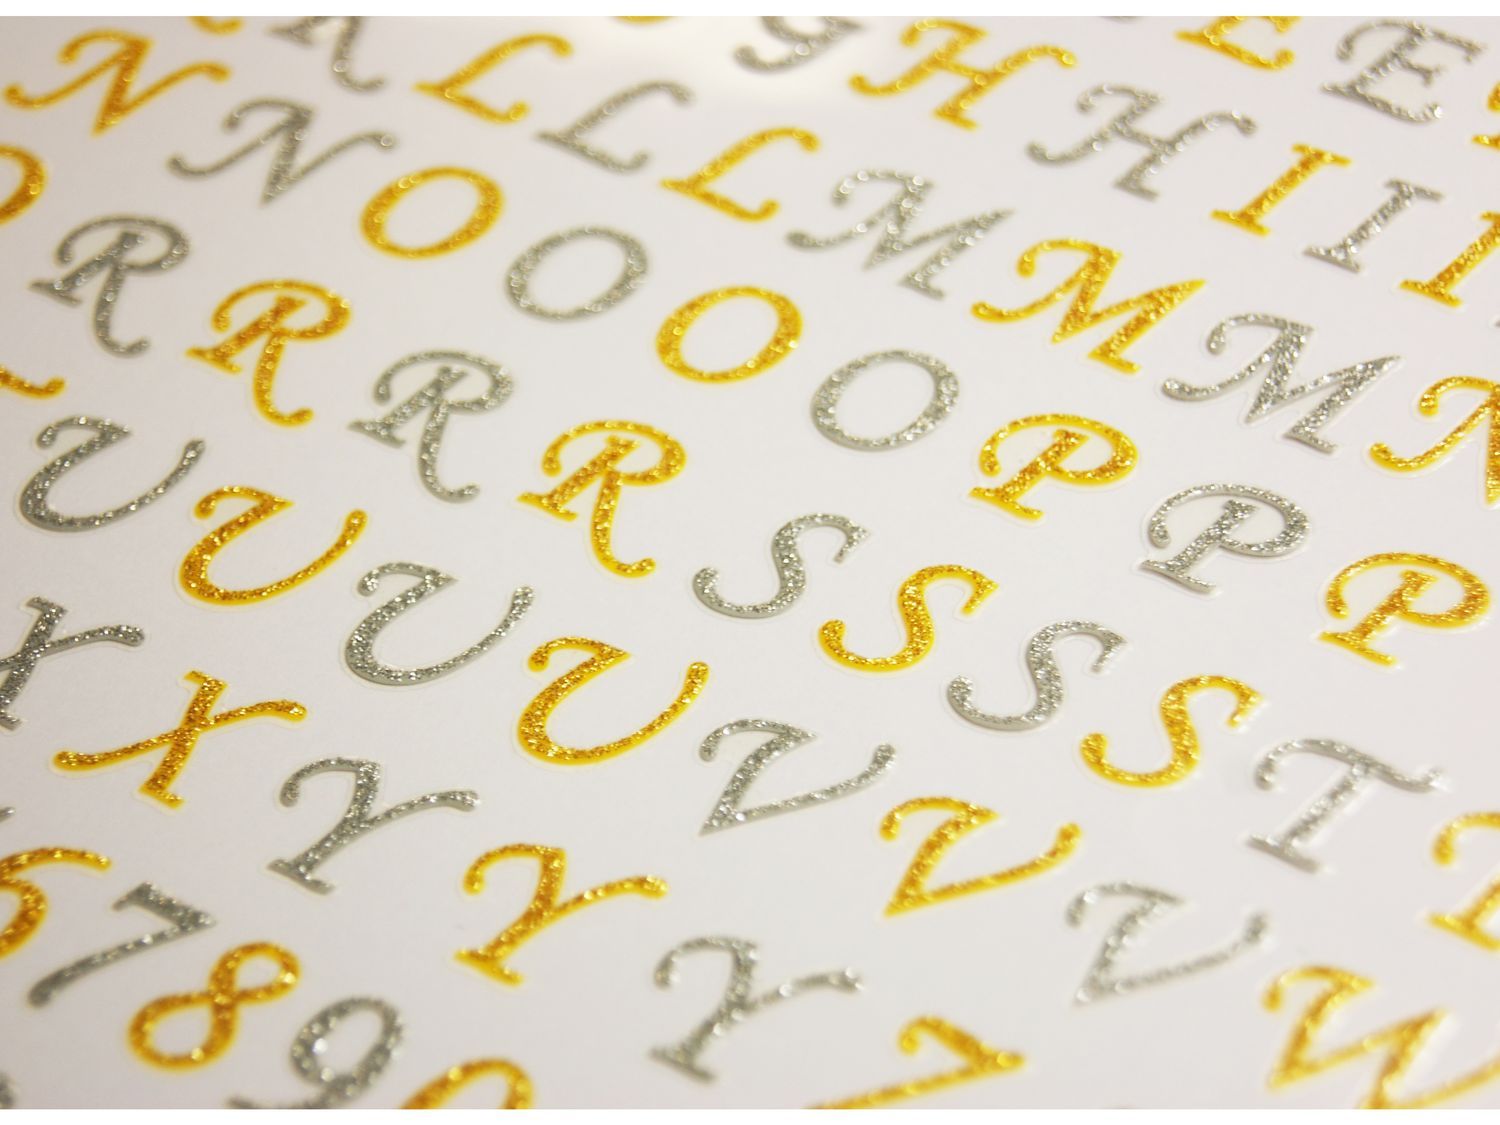 R G E E
N L L H H I I I
N O O L M M M M
R R O O P P P
R R S S S S T
U U U U V V V W
X X Y Y Y
6 7 8 9 0 Z